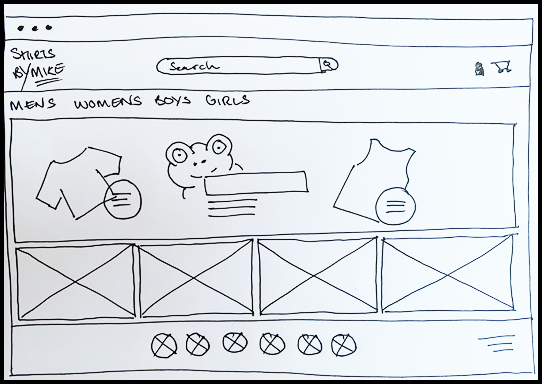 SHIRTS
BY MIKE
Search
MENS WOMENS BOYS GIRLS